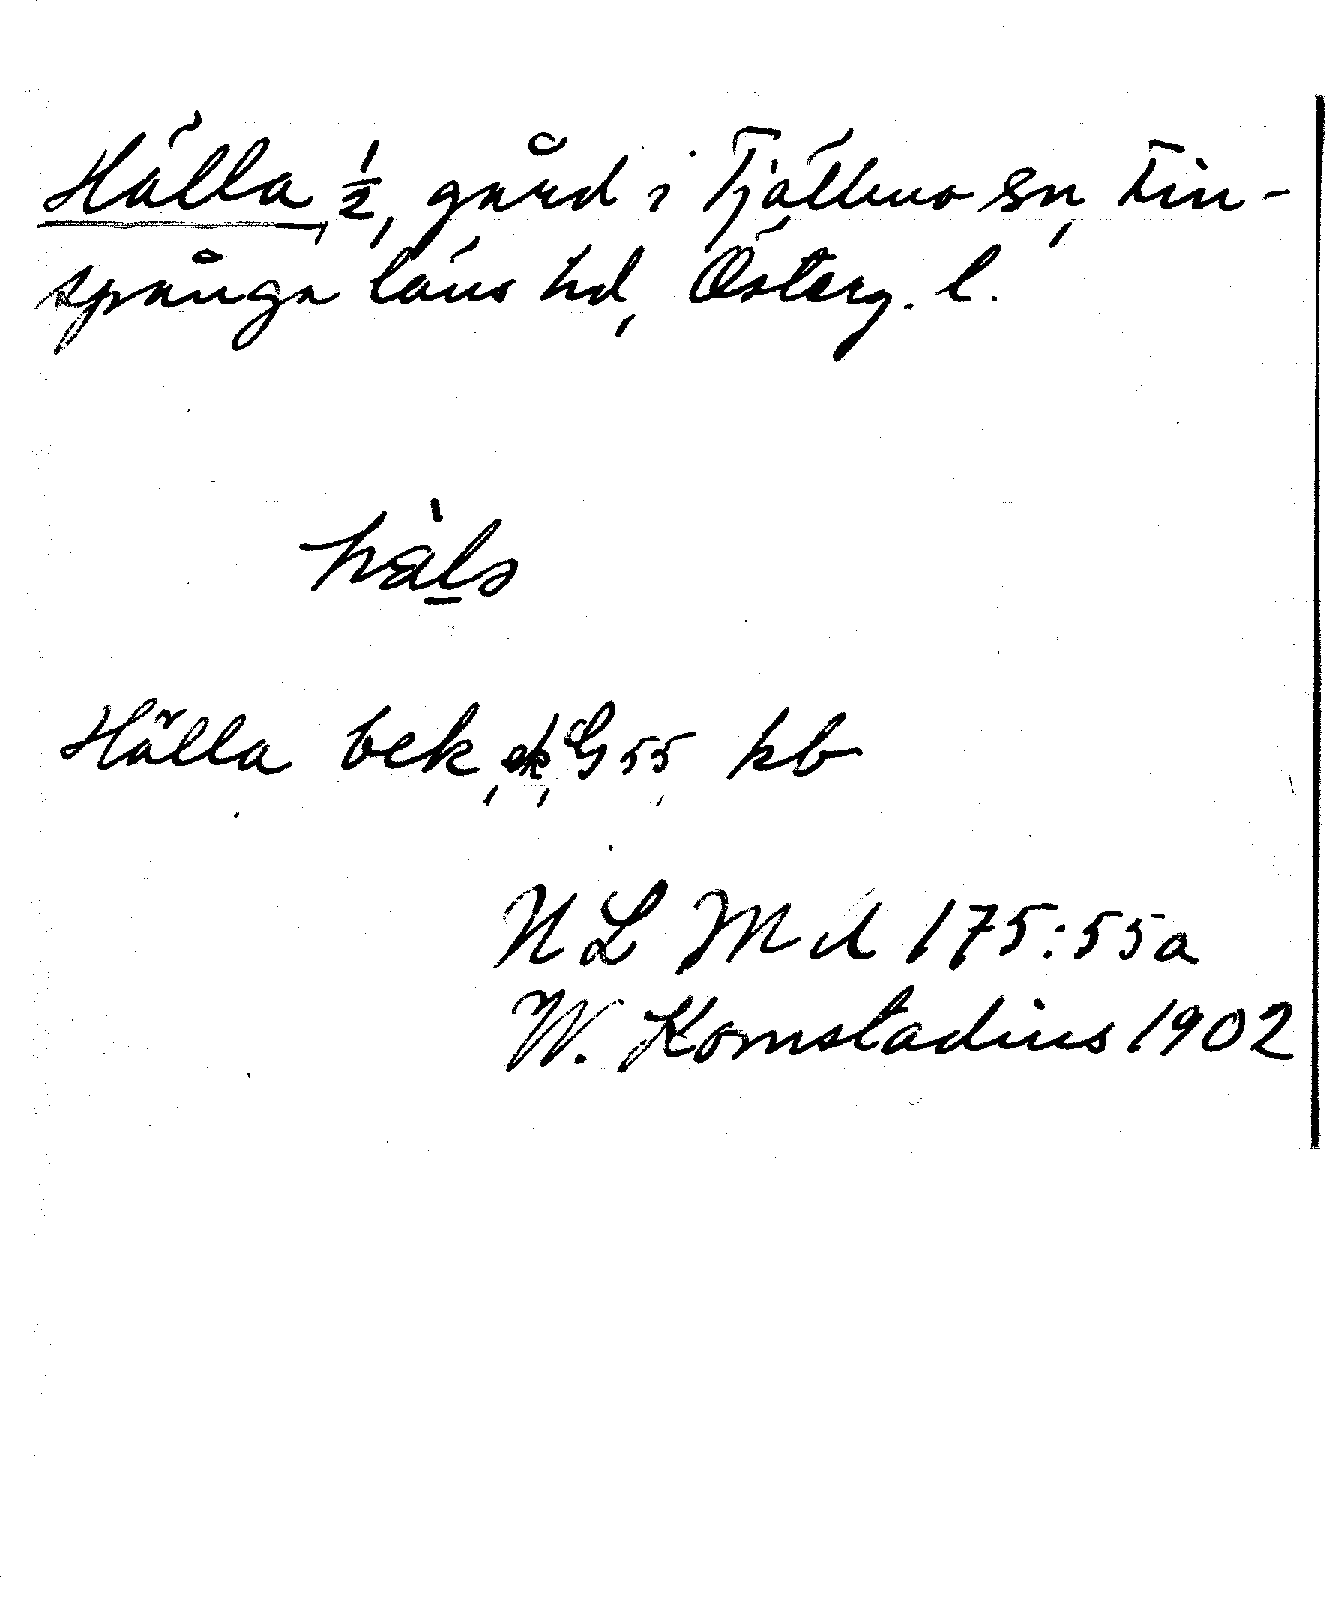 Hälla, 1/2, gård i Tjällmo sn, Fin-
spånga läns hd, Österg. l.
hàls
Hälla bek, ek, G 55, kb
N L M d 175:55a
W. Komstadius 1902